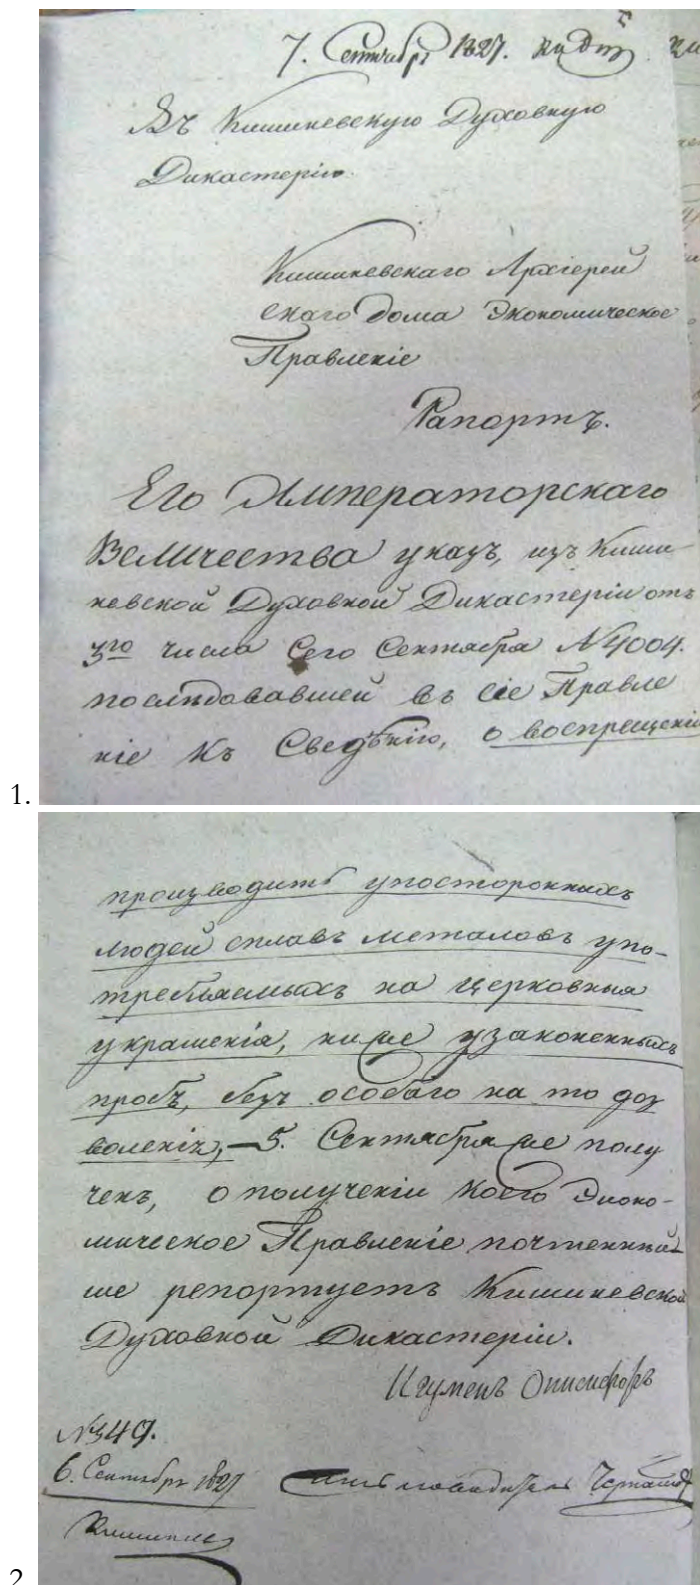 7. Сентября 1827.
Въ Кишиневскую Духовную
Дикастерію.
Кишиневскаго Архіерей
скаго дома Экономическое
Правленіе
Рапортъ.
Его Императорскаго
Величества указъ, изъ Киши
невской Духовной Дикастеріи отъ
3го числа сего Сентября №4004.
последовавшей въ сіе Правле
ніе къ Сведѣнію, о воспрещеніи
1.
производить упостороннихъ
людей сплавъ металовъ упо-
требляемыхъ на церковныя
украшенія, ниже узаконенныхъ
пробъ, безъ особаго на то доз
воленія,—5. Сентября же полу
ченъ, о полученіи коего Эконо-
мическое Правленіе почтеннѣй
ше репортуетъ Кишиневской
Духовной Дикастеріи.
Игуменъ Онисифоръ
№349.
6. Сентября 1827
Кишинев
2.